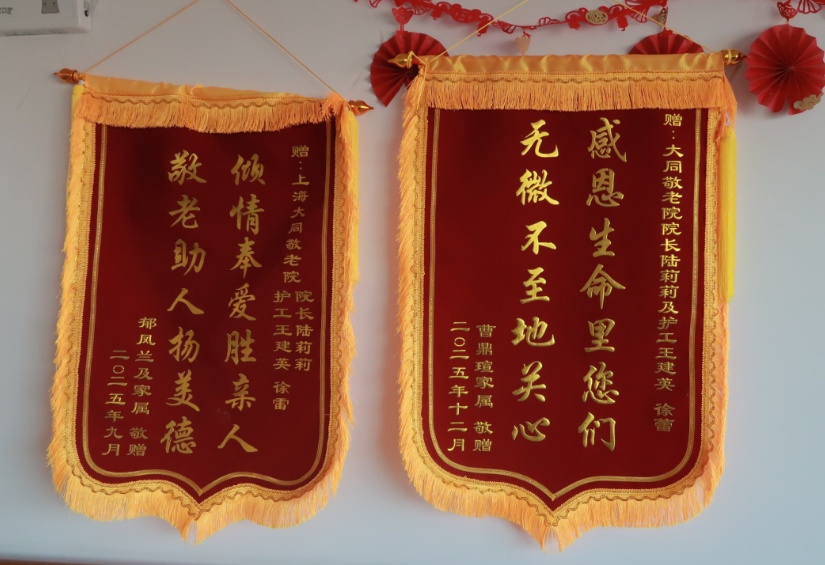 赠：上海大同敬老院 院长陆莉莉
护工王建英 徐雷
倾情奉爱胜亲人
敬老助人扬美德
郁凤兰及家属 敬赠
二〇二五年九月
赠：大同敬老院院长陆莉莉及护工王建英 徐蕾
感恩生命里您们
无微不至地关心
曹鼎瑄家属 敬赠
二〇二五年十二月